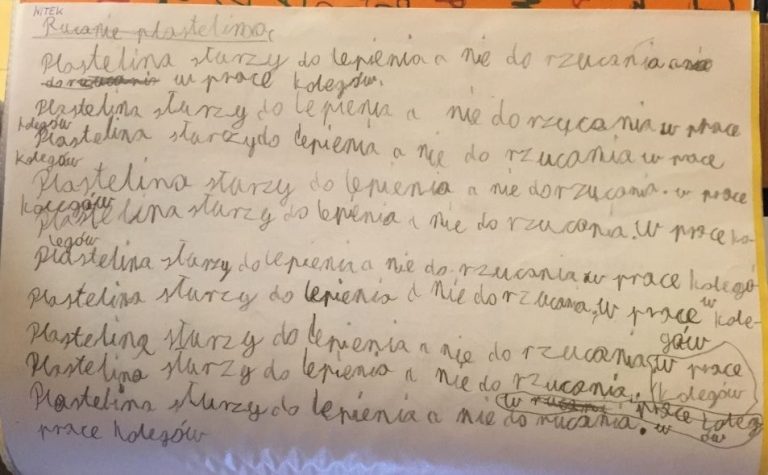 NITEK
Rucanie plastelimą
Plastelina sturzy do lepienia a nie do rzucania
w prace kolegów.
Plastelina sturzy do lepienia a nie do rzucania w prace
kolegów
Plastelina sturzy do lepienia a nie do rzucania w prace
kolegów
Plastelina sturzy do lepienia a nie do rzucania. w prace
kolegów
Plastelina sturzy do lepienia a nie do rzucania. w prace ko-
legów
Plastelina sturzy do lepienia a nie do rzucania w prace kolegó
w
Plastelina sturzy do lepienia a nie do rzucania, w prace kole-
gów
Plastelina sturzy do lepienia a nie do rzucania w prace
kolegów
Plastelina sturzy do lepienia a nie do rzucania. prace koleg
w ów
Plastelina sturzy do lepienia a nie do rucania.
prace kolegów